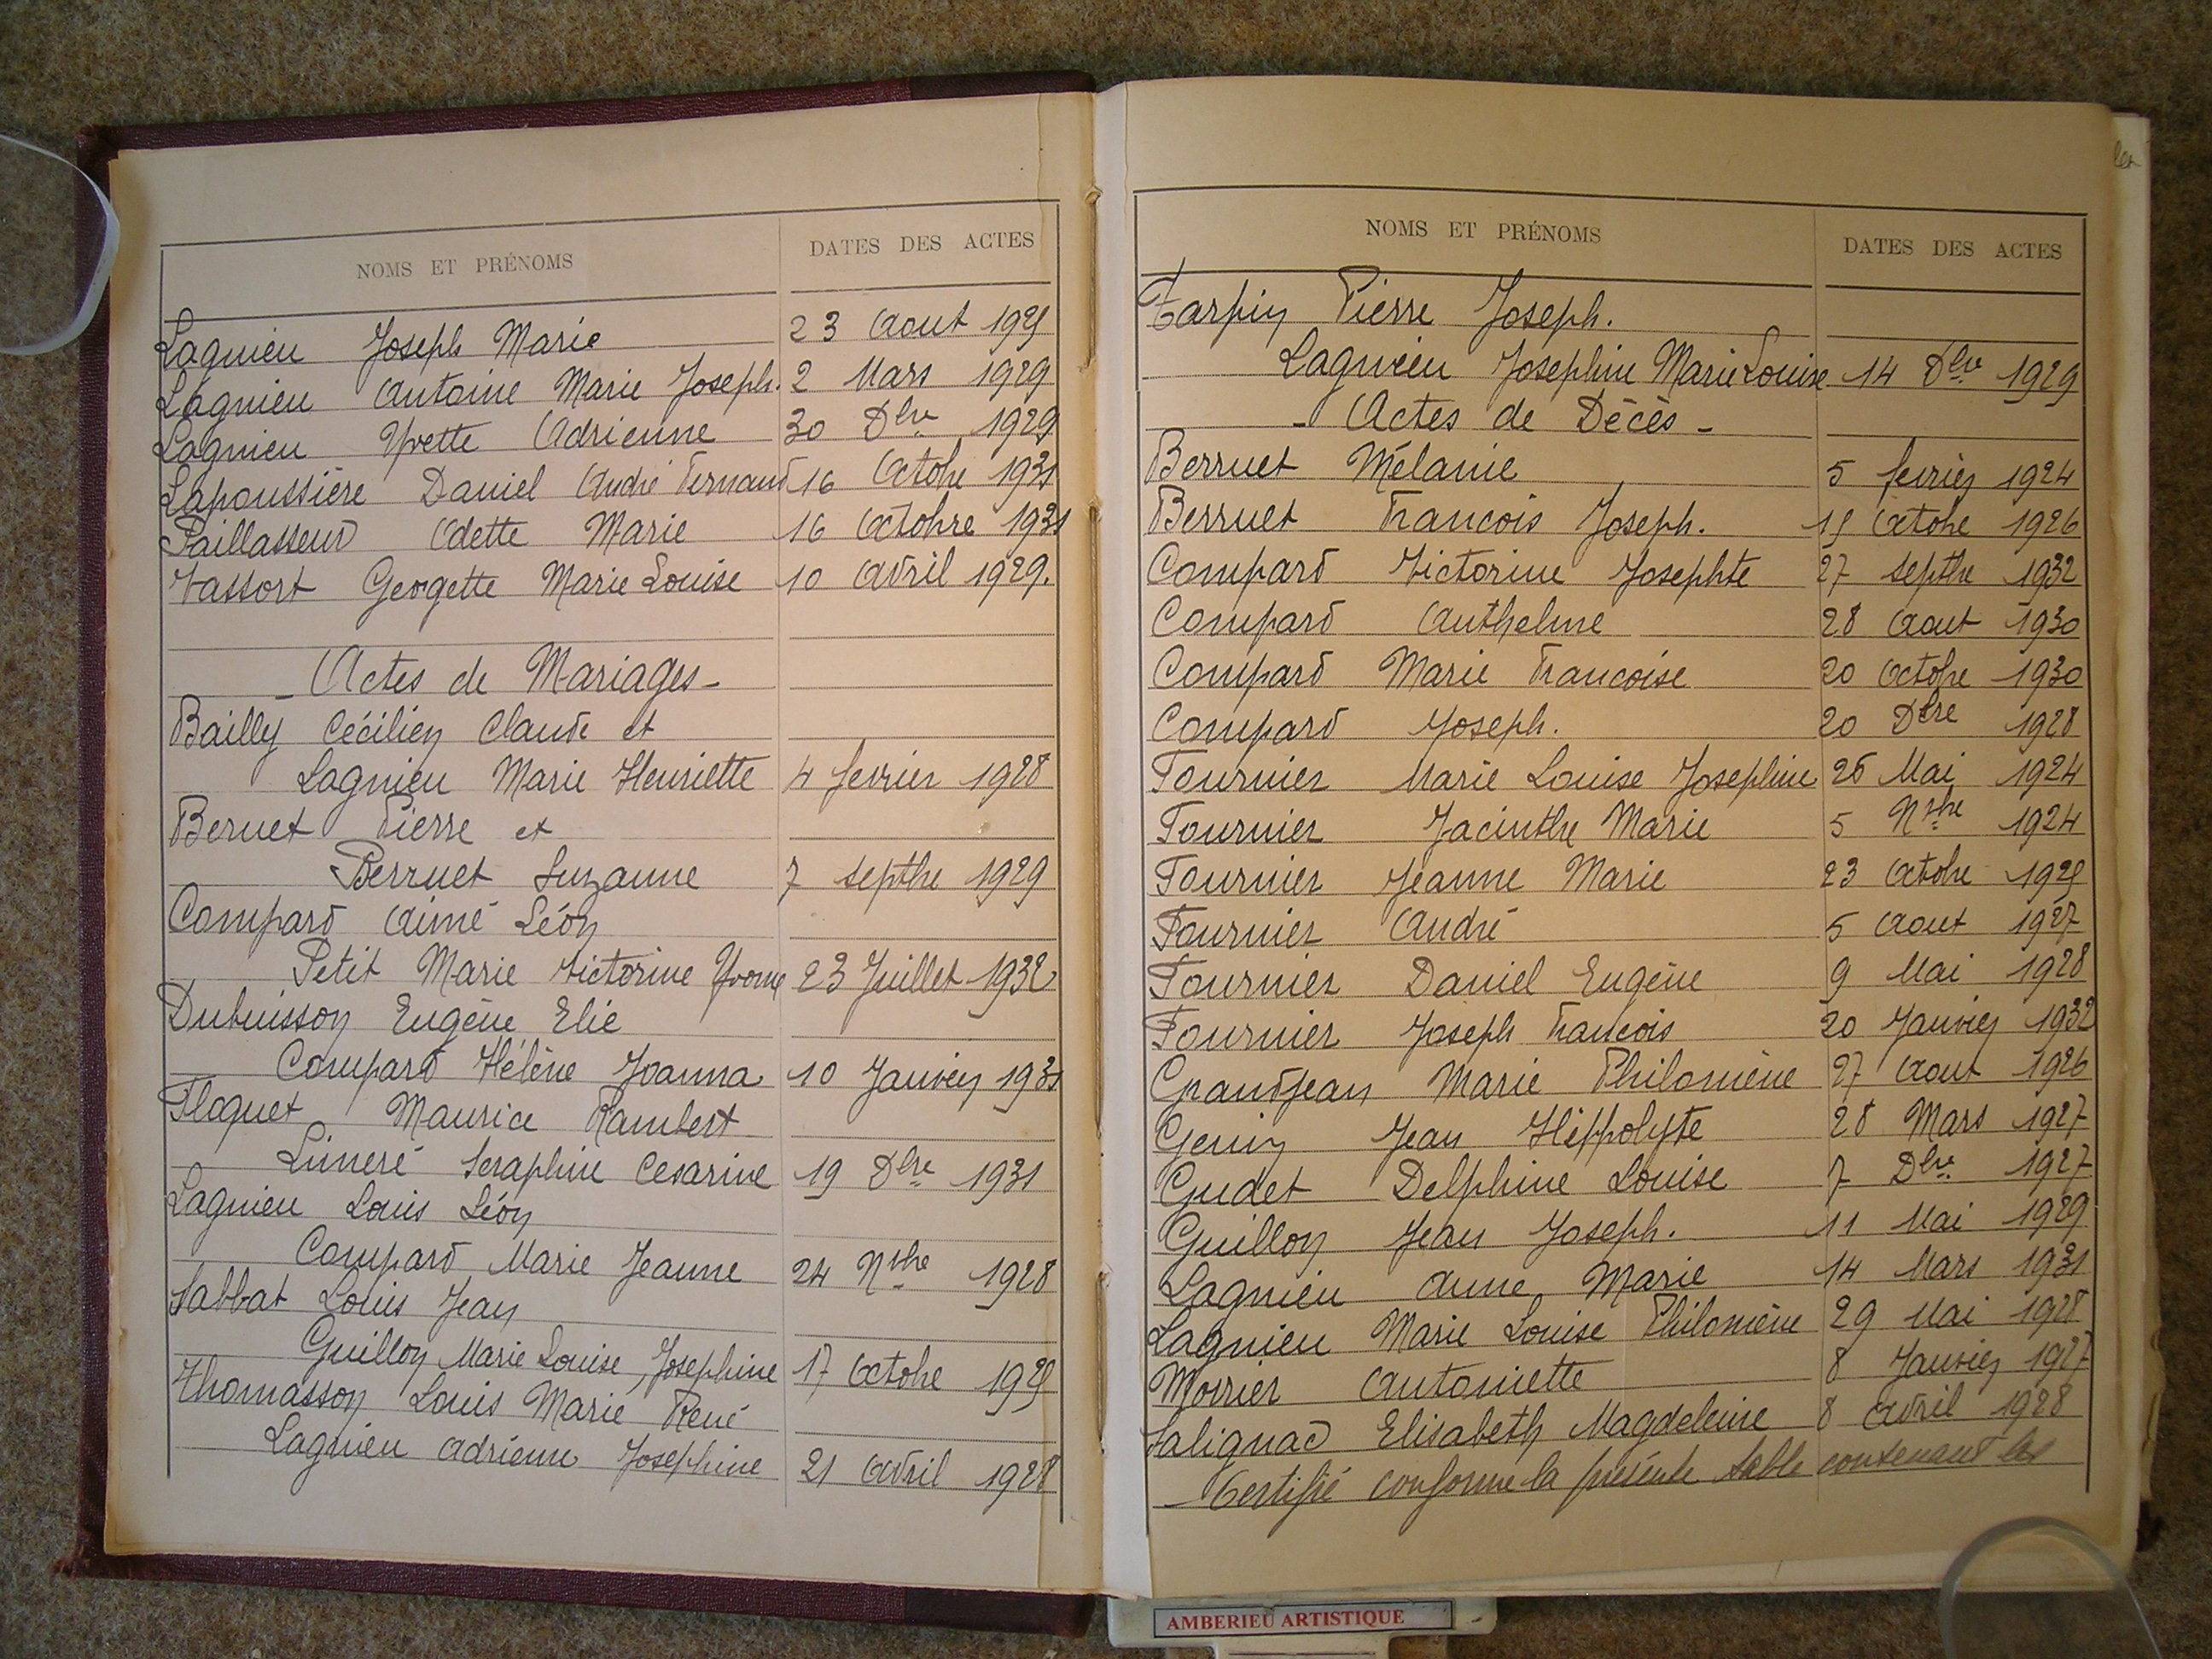 NOMS ET PRÉNOMS DATES DES ACTES
Lagnieu Joseph Marie 23 Aout 1925
Lagnieu Antoine Marie Joseph. 2 Mars 1929
Lagnieu Yvette Adrienne 30 Dbre 1929
Lapoussière Daniel André Fernand 16 Octobre 1931
Paillasseur Odette Marie 16 Octobre 1931
Vassort Georgette Marie Louise 10 Avril 1929.
- Actes de Mariages -
Bailly Cécilien Claude et
Lagnieu Marie Henriette 4 fevrier 1928
Beruet Pierre et
Berruet Suzanne 7 septbre 1929
Compard Aimé Léon
Petit Marie Victorine Yvonne 23 Juillet 1932
Dubuisson Eugène Elie
Compard Hélène Joanna 10 Janvier 1931
Floquet Maurice Rambert
Limeré Seraphine Cesarine 19 Dbre 1931
Lagnieu Louis Léon
Compard Marie Jeanne 24 Nvbre 1928
Sabbat Louis Jean
Guillon Marie Louise, Josephine 17 Octobre 1925
Thomasson Louis Marie René
Lagnieu Adrienne Josephine 21 Avril 1928
NOMS ET PRÉNOMS DATES DES ACTES
Tarpin Pierre Joseph.
Lagnieu Josephine Marie Louise 14 Dbre 1929
- Actes de Décès -
Berruet Mélanie 5 fevrier 1924
Berruet Francois Joseph. 15 Octobre 1926
Compard Victorine Josephte 27 septbre 1932
Compard Anthelme 28 Aout 1930
Compard Marie Francoise 20 Octobre 1930
Compard Joseph. 20 Dbre 1928
Fournier Marie Louise Josephine 26 Mai 1924
Fournier Jacinthe Marie 5 Nvbre 1924
Fournier Jeanne Marie 23 Octobre 1925
Fournier André 5 Aout 1927
Fournier Daniel Eugène 9 Mai 1928
Fournier Joseph Francois 20 Janvier 1932
Grandjean Marie Philomène 27 Aout 1926
Genin Jean Hippolyte 28 Mars 1927
Gudet Delphine Louise 7 Dbre 1927
Guillon Jean Joseph. 11 Mai 1929
Lagnieu Anne Marie 14 Mars 1931
Lagnieu Marie Louise Philomène 29 Mai 1928
Moirier Antoniette 8 Janvier 1927
Salignad Elisabeth Magdeleine 8 Avril 1928
Certifié conforme la présente table contenant les
AMBERIEU ARTISTIQUE